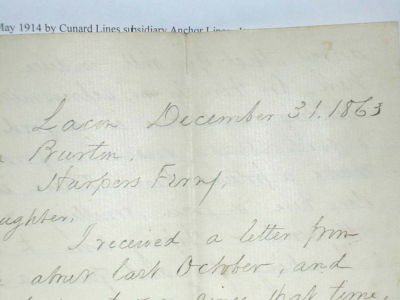 May 1914 by Cunard Lines subsidiary Anchor Lines
Lacon December 31. 1863
Burton.
Harpers Ferry,
aughter.
I received a letter from
about last October, and
since that time,